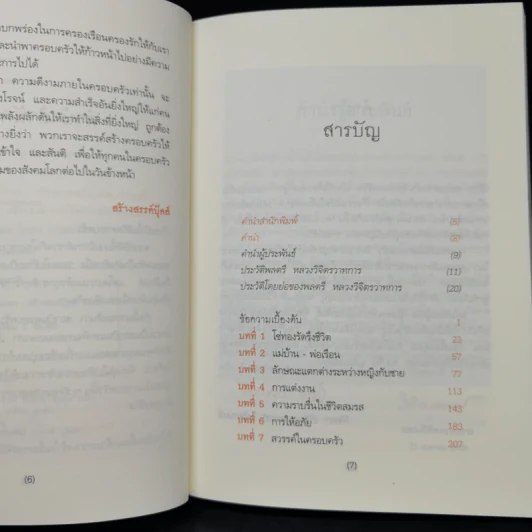 บกพร่องในการครองเรือนครองรักให้กับเรา
ละนำพาครอบครัวให้ก้าวหน้าไปอย่างมีความ
การไปได้
ความดีงามภายในครอบครัวเท่านั้น จะ
งโรจน์ และความสำเร็จอันยิ่งใหญ่ให้แก่ตน
พลังผลักดันให้เราทำในสิ่งที่ยิ่งใหญ่ ถูกต้อง
างยิ่งว่า พวกเราจะสรรค์สร้างครอบครัวให้
ข้าใจ และสันติ เพื่อให้ทุกคนในครอบครัว
มของสังคมโลกต่อไปในวันข้างหน้า
สร้างสรรค์บุ๊คส์
(6)
สารบัญ
คำนำสำนักพิมพ์ (5)
คำนำ
คำนำผู้ประพันธ์ (9)
ประวัติพลตรี หลวงวิจิตรวาทการ (11)
ประวัติโดยย่อของพลตรี หลวงวิจิตรวาทการ (20)
ข้อความเบื้องต้น 1
บทที่ 1 โซ่ทองรัดรึงชีวิต 23
บทที่ 2 แม่บ้าน - พ่อเรือน 57
บทที่ 3 ลักษณะแตกต่างระหว่างหญิงกับชาย 77
บทที่ 4 การแต่งงาน 113
บทที่ 5 ความราบรื่นในชีวิตสมรส 143
บทที่ 6 การให้อภัย 183
บทที่ 7 สวรรค์ในครอบครัว 207
(7)